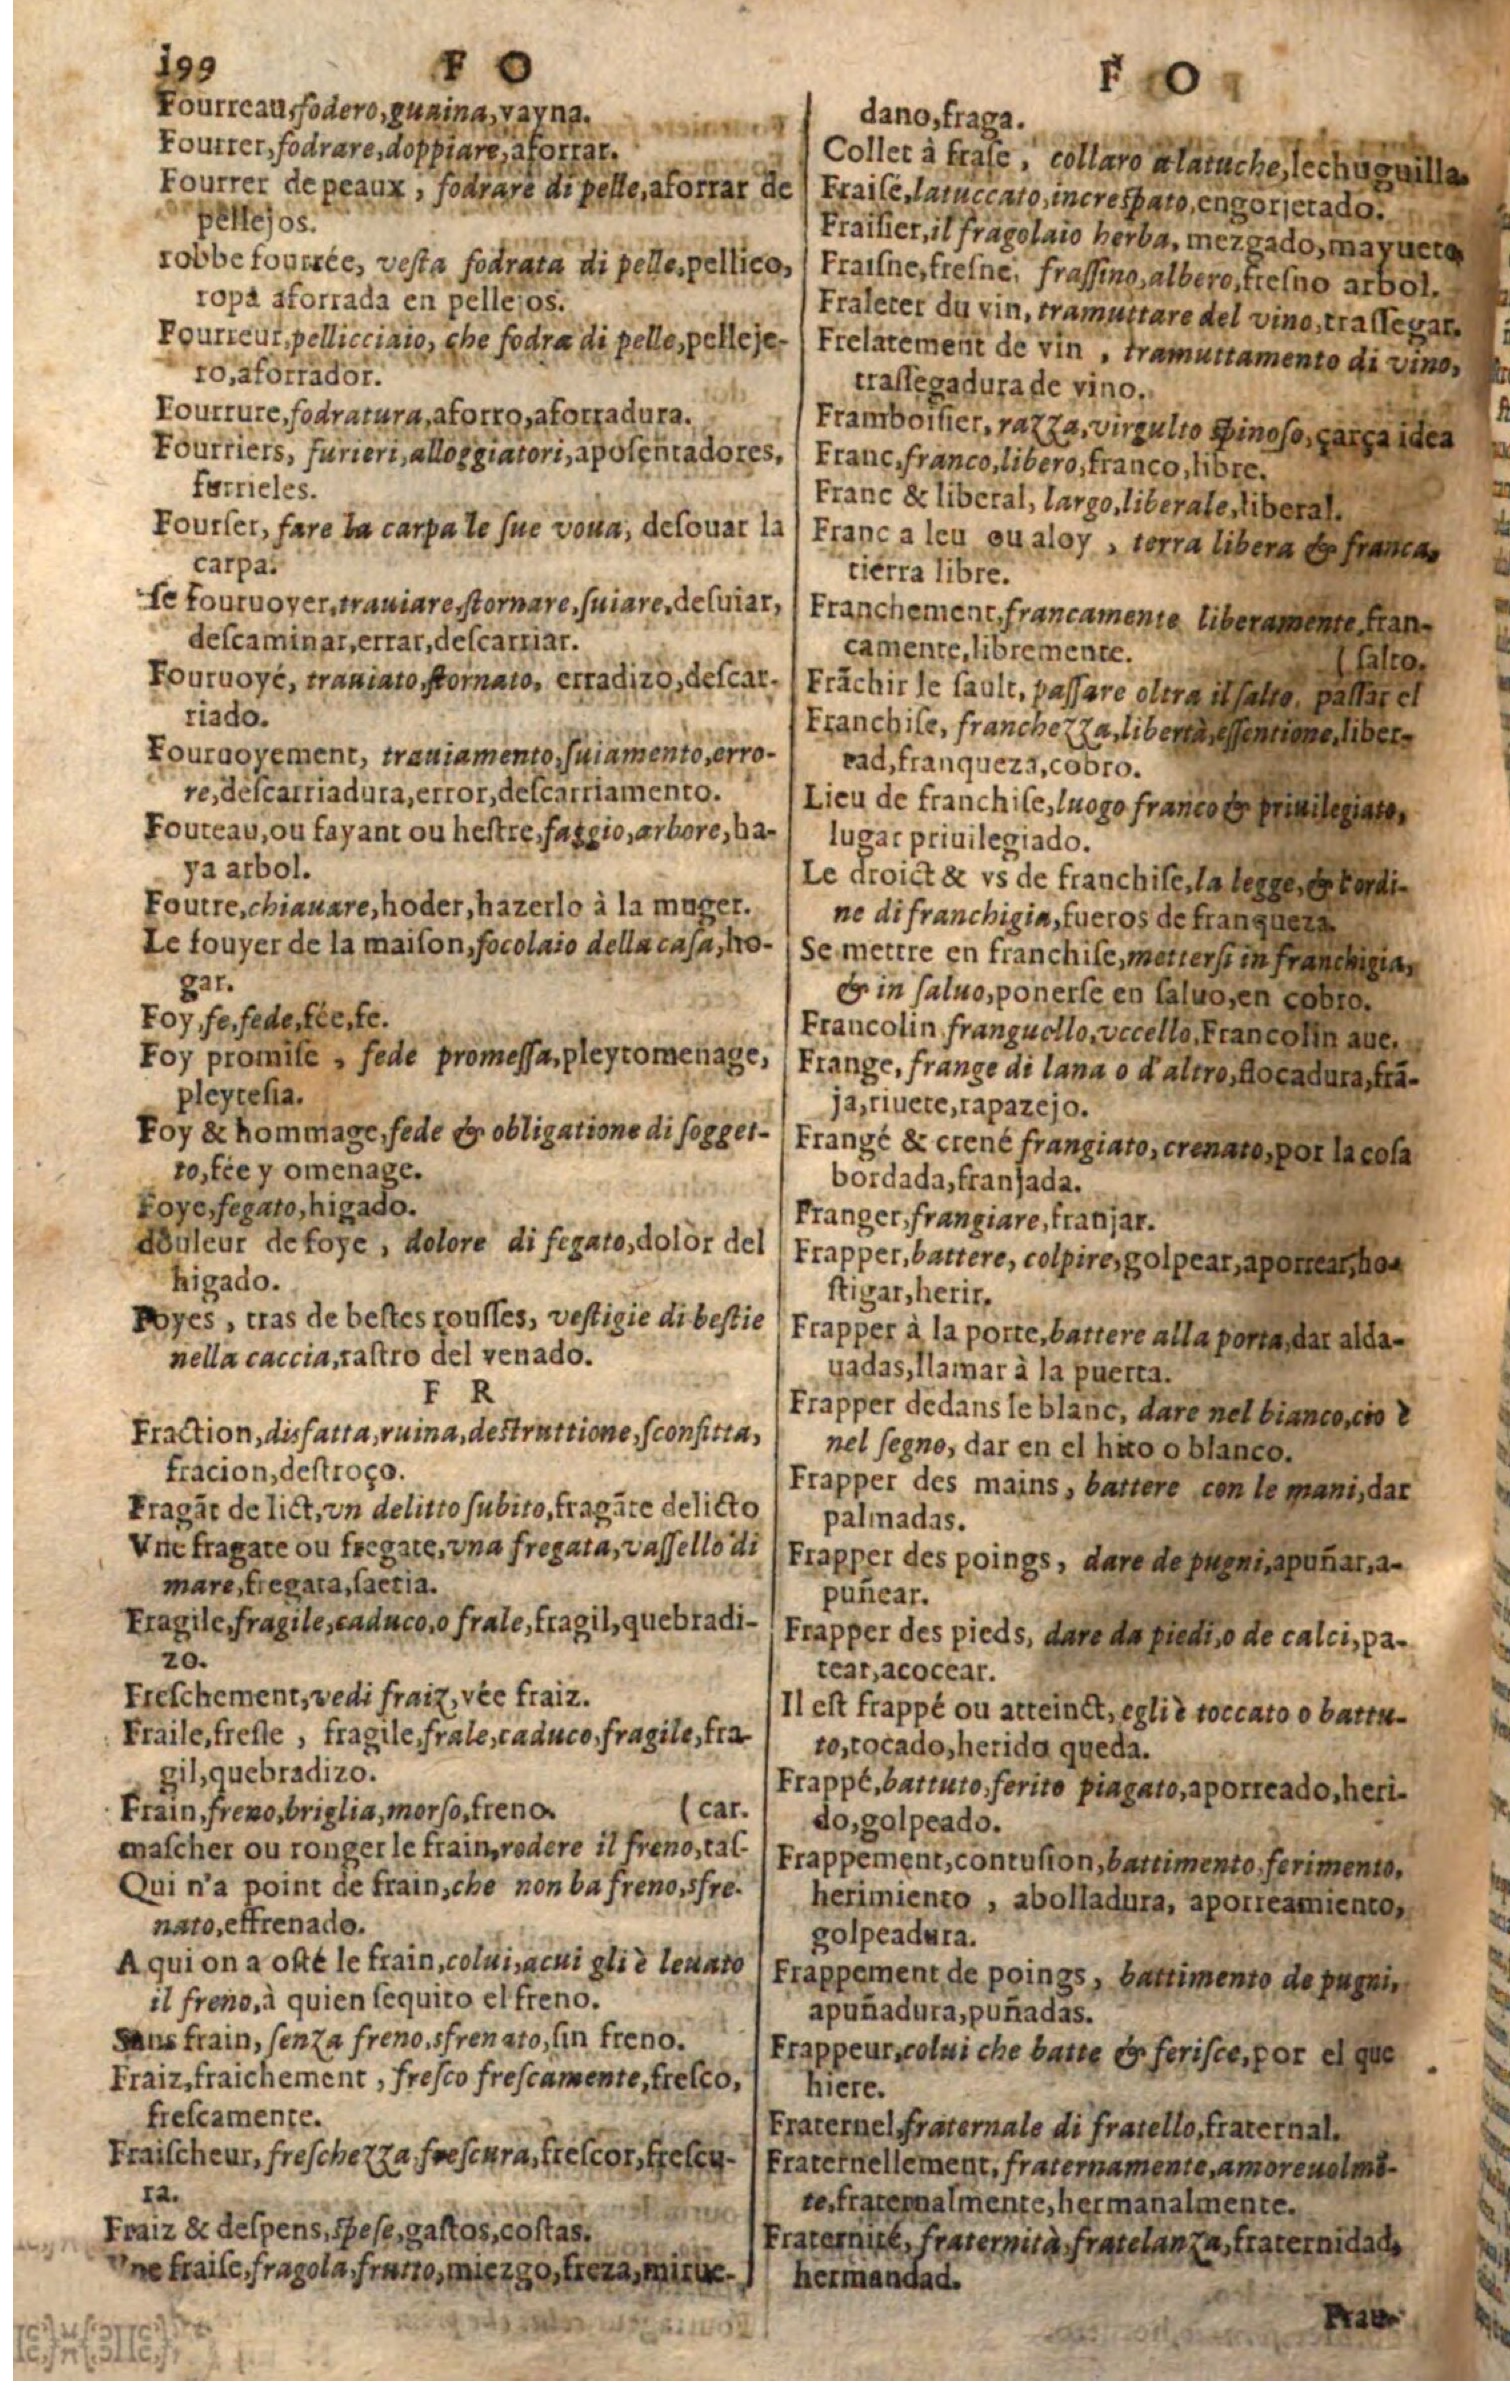 199 F O
Fourreau,fodero,guaina,vayna.
Fourrer,fodrare,doppiare,aforrar.
Fourrer de peaux , fodrare di pelle,aforrar de
pellejos.
robbe fourrée, veſta fodrata di pelle,pellico,
ropa aforrada en pellejos.
Fourreur,pellicciaio, che fodra di pelle,pelleje-
ro,aforrador.
Fourrure,fodratura,aforro,aforradura.
Fourriers, furieri,alloggiatori,apoſentadores,
furrieles.
Fourſer, fare la carpa le ſue voua, deſouar la
carpa.
ſe fouruoyer,trauiare,ſtornare,ſuiare,deſuiar,
deſcaminar,errar,deſcarriar.
Fouruoyé, trauiato,ſtornato, erradizo,deſcar-
riado.
Fouruoyement, trauiamento,ſuiamento,erro-
re,deſcarriadura,error,deſcarriamento.
Fouteau,ou fayant ou heſtre,faggio,arbore,ha-
ya arbol.
Foutre,chiauare,hoder,hazerlo à la muger.
Le fouyer de la maiſon,focolaio della caſa,ho-
gar.
Foy,fe,fede,fée,fe.
Foy promiſe , fede promeſſa,pleytomenage,
pleyteſia.
Foy & hommage,fede & obligatione di ſogget-
to,fée y omenage.
Foye,fegato,higado.
douleur de foye , dolore di fegato,dolòr del
higado.
Foyes , tras de beſtes rouſſes, veſtigie di beſtie
nella caccia,raſtro del venado.
F R
Fraction,disfatta,ruina,deſtruttione,ſconfitta,
fracion,deſtroço.
Fragãt de lict,vn delitto ſubito,fragãte delicto
Vne fragate ou fregate,vna fregata,vaſſello di
mare,fregata,ſaetia.
Fragile,fragile,caduco,o frale,fragil,quebradi-
zo.
Freſchement,vedi fraiz,vée fraiz.
Fraile,freſle , fragile,frale,caduco,fragile,fra-
gil,quebradizo.
Frain,freno,briglia,morſo,freno. (car.
maſcher ou ronger le frain,rodere il freno,taſ-
Qui n'a point de frain,che non ha freno,sfre-
nato,effrenado.
A qui on a oſté le frain,colui,acui gli è leuato
il freno,à quien ſequito el freno.
Sans frain, ſenza freno,sfrenato,ſin freno.
Fraiz,fraichement , freſco freſcamente,freſco,
freſcamente.
Fraiſcheur, freſchezza freſcura,freſcor,freſcu-
ra.
Fraiz & deſpens,ſpeſe,gaſtos,coſtas.
Vne fraiſe,fragola,frutto,miezgo,freza,mirue-
F O
dano,fraga.
Collet à fraſe , collaro a latuche,lechuguilla.
Fraiſé,latuccato,increſpato,engorjetado.
Fraiſier,il fragolaio herba, mezgado,mayueta
Fraiſne,freſne, fraſſino,albero,freſno arbol.
Fraleter du vin, tramuttare del vino,traſſegar.
Frelatement de vin , tramuttamento di vino,
traſſegadura de vino.
Framboiſier, razza,virgulto ſpinoſo,çarça idea
Franc,franco,libero,franco,libre.
Franc & liberal, largo,liberale,liberal.
Franc a leu ou aloy , terra libera & franca,
tierra libre.
Franchement,francamente liberamente,fran-
camente,libremente. (ſalto.
Frãchir le ſault, paſſare oltra il ſalto, paſſar el
Franchiſe, franchezza,libertà,eſſentione,liber-
tad,franqueza,cobro.
Lieu de franchiſe,luogo franco & priuilegiato,
lugar priuilegiado.
Le droict & vs de franchiſe,la legge,& l'ordi-
ne di franchigia,fueros de franqueza.
Se mettre en franchiſe,metterſi in franchigia,
& in ſaluo,ponerſe en ſaluo,en cobro.
Francolin franguello,vccello,Francolin aue.
Frange, frange di lana o d'altro,flocadura,frã-
ja,riuete,rapazejo.
Frangé & crené frangiato, crenato,por la coſa
bordada,franjada.
Franger,frangiare,franjar.
Frapper,battere, colpire,golpear,aporrear,ho-
ſtigar,herir.
Frapper à la porte,battere alla porta,dar alda-
uadas,llamar à la puerta.
Frapper dedans le blanc, dare nel bianco,cio è
nel ſegno, dar en el hito o blanco.
Frapper des mains , battere con le mani,dar
palmadas.
Frapper des poings , dare de pugni,apuñar,a-
puñear.
Frapper des pieds, dare da piedi,o de calci,pa-
tear,acocear.
Il eſt frappé ou atteinct, egli è toccato o battu-
to,tocado,herido queda.
Frappé,battuto,ferito piagato,aporreado,heri-
do,golpeado.
Frappement,contuſion,battimento,ferimento,
herimiento , abolladura, aporreamiento,
golpeadura.
Frappement de poings , battimento de pugni,
apuñadura,puñadas.
Frappeur,colui che batte & feriſce,por el que
hiere.
Fraternel,fraternale di fratello,fraternal.
Fraternellement, fraternamente,amoreuolmẽ-
te,fraternalmente,hermanalmente.
Fraternité, fraternità,fratelanza,fraternidad,
hermandad.
Frau-